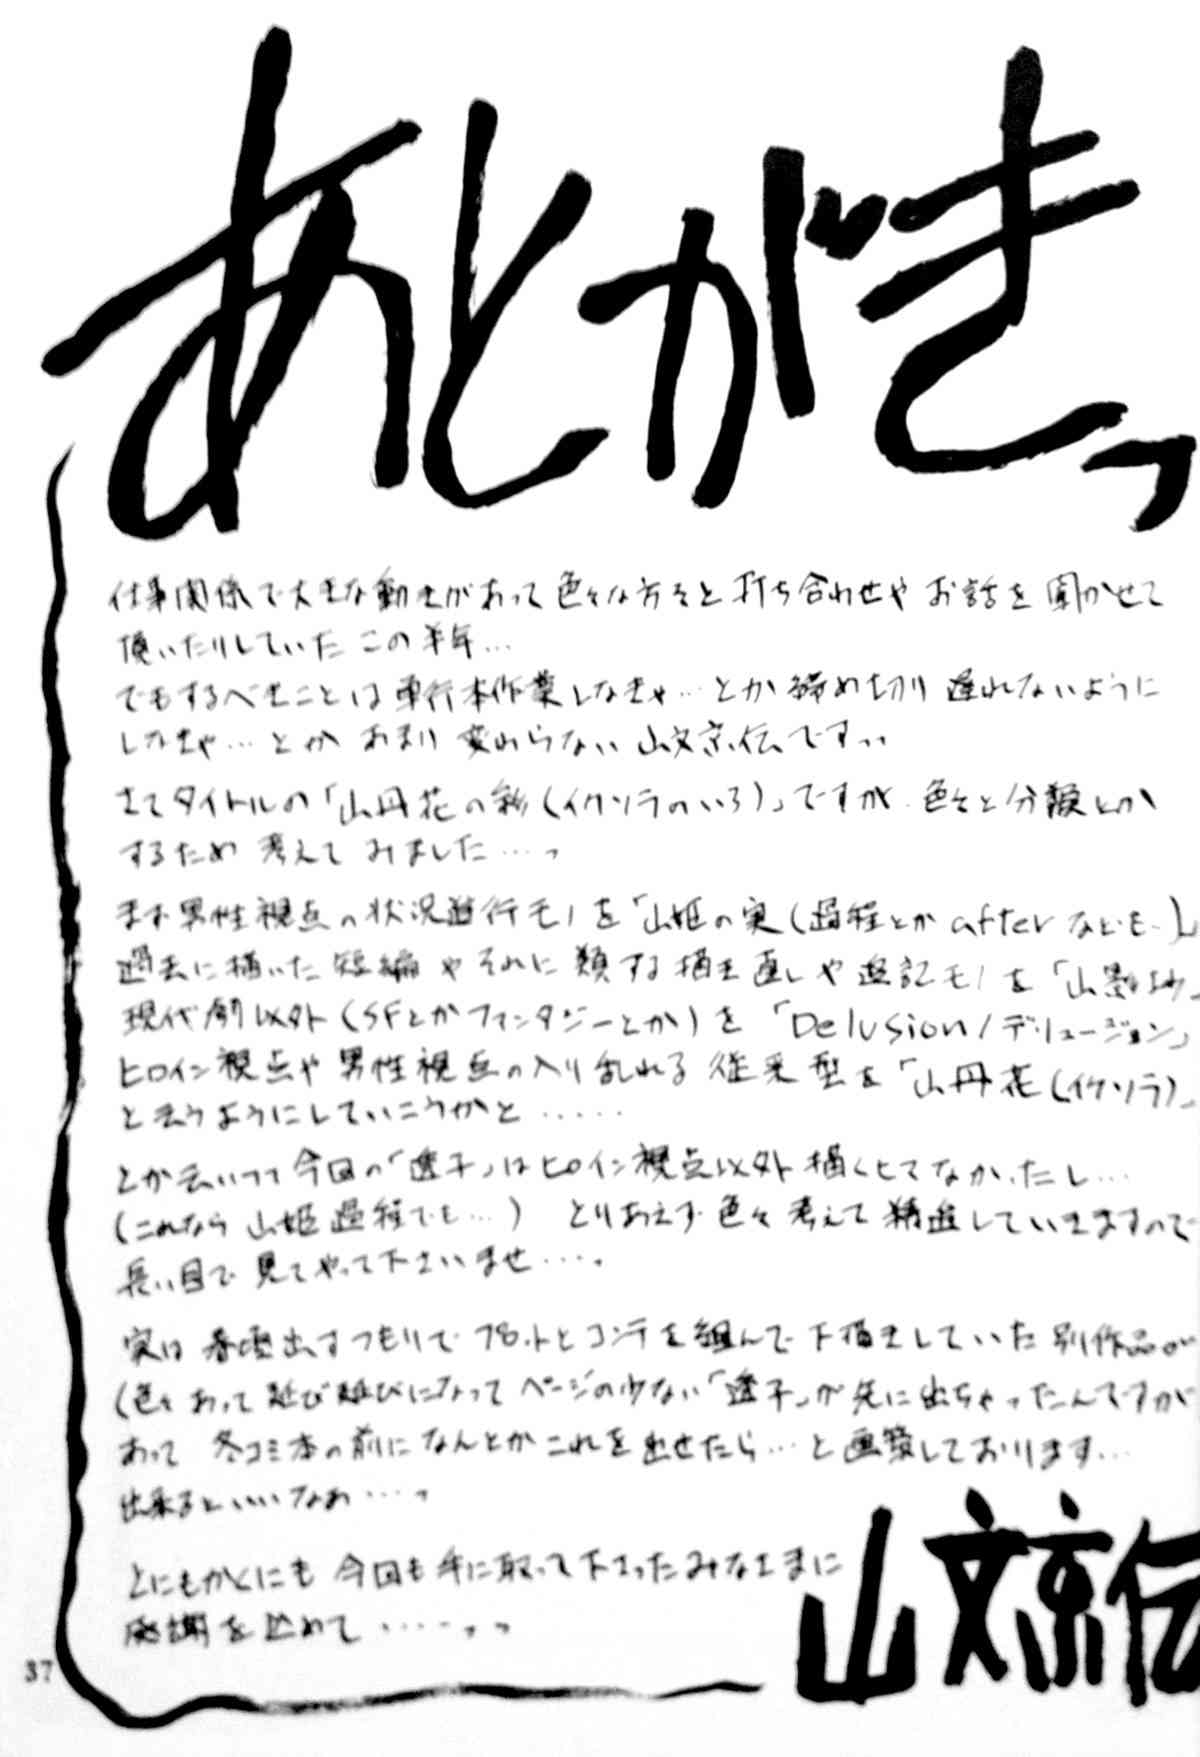 あとがきっ
仕事関係で大きな動きがあって色々な方々と打ち合わせやお話を聞かせて
頂いたりしていたこの半年…
でもするべきことは単行本作業しなきゃ…とか締め切り遅れないように
しなきゃ…とかあまり変わらない山文京伝ですっ
さてタイトルの「山丹花の彩(イケソラのいろ)」ですが、色々と分類とか
するため考えてみました……っ
まず男性視点の状況進行モノを「山姫の実(過程とかafterなども…)」
過去に描いた短編やそれに類する描き直しや追記モノを「山影抄」
現代劇以外(SFとかファンタジーとか)を「Delusion/デリュージョン」
ヒロイン視点や男性視点の入り乱れる従来型を「山丹花(イケソラ)」
と云うようにしていこうかと……
とか云いつつ今回の「透子」はヒロイン視点以外描くヒマなかったし…
(これなら山姫過程でも…) とりあえず色々考えて精進していきますので
長い目で見てやって下さいませ……。
実は春頃出すつもりでプロットとコンテを組んで下描きしていた別作品が
(色々あって延び延びになってページの少ない「透子」が先に出ちゃったんですが
あって 冬コミ本の前になんとかこれを出せたら…と画策しております…
出来るといいなぁ…っ
とにもかくにも今回も手に取って下さったみなさまに
感謝を込めて……っっ
山文京伝
37